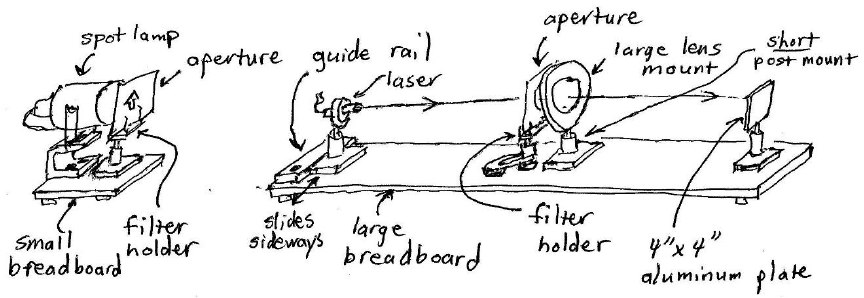 spot lamp
aperture
small
breadboard
filter
holder
guide rail
laser
slides
sideways
large
breadboard
aperture
large lens
mount
short
post mount
filter
holder
4" x 4"
aluminum plate